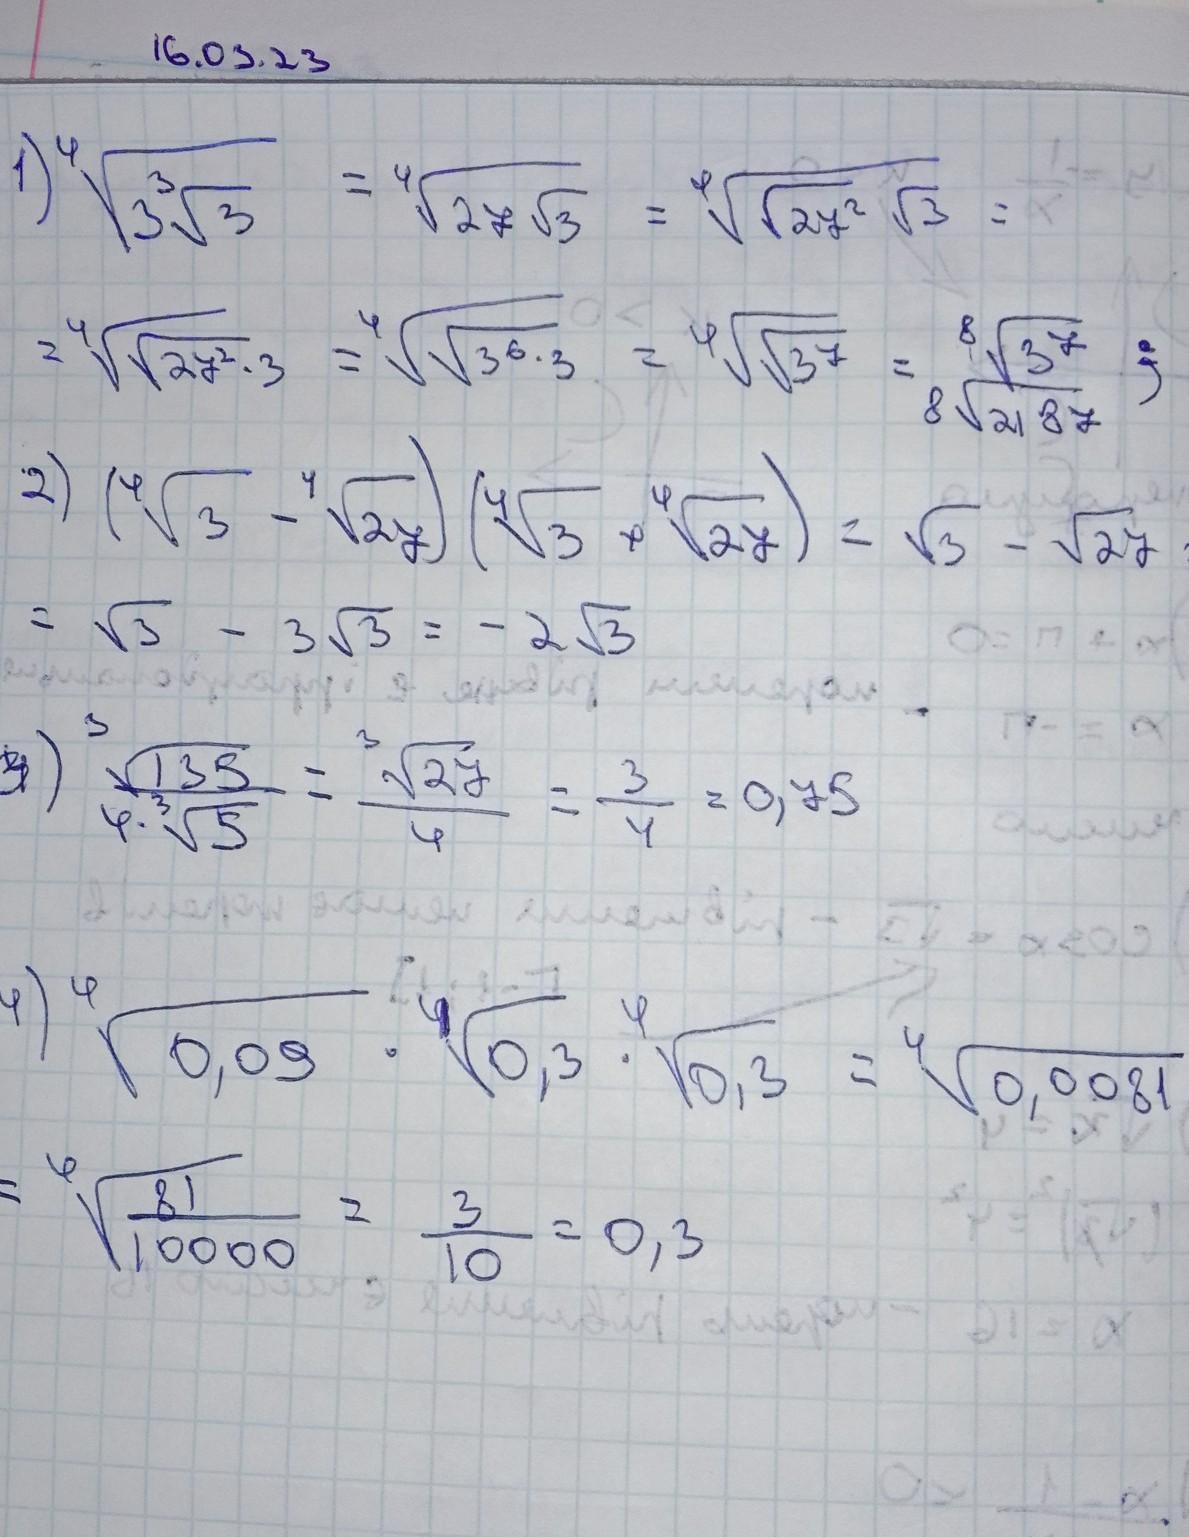 16.03.23
1) ⁴√(3³√3) = ⁴√(27√3) = ⁴√(√27² √3) =
= ⁴√(√27²·3) = ⁴√(√3⁶·3) = ⁴√(√3⁷) = ⁸√3⁷ ;
⁸√2187
2) (⁴√3 - ⁴√27)(⁴√3 + ⁴√27) = √3 - √27 =
= √3 - 3√3 = -2√3
3) ³√135 / 4·³√5 = ³√27 / 4 = 3/4 = 0,75
4) ⁴√0,09 · ⁴√0,3 · ⁴√0,3 = ⁴√0,0081
= ⁴√(81/10000) = 3/10 = 0,3